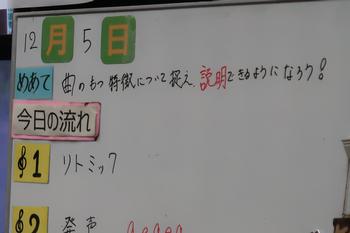 12月5日
めあて 曲のもつ特徴について捉え、説明できるようになろう!
今日の流れ
1 リトミック
2 発声